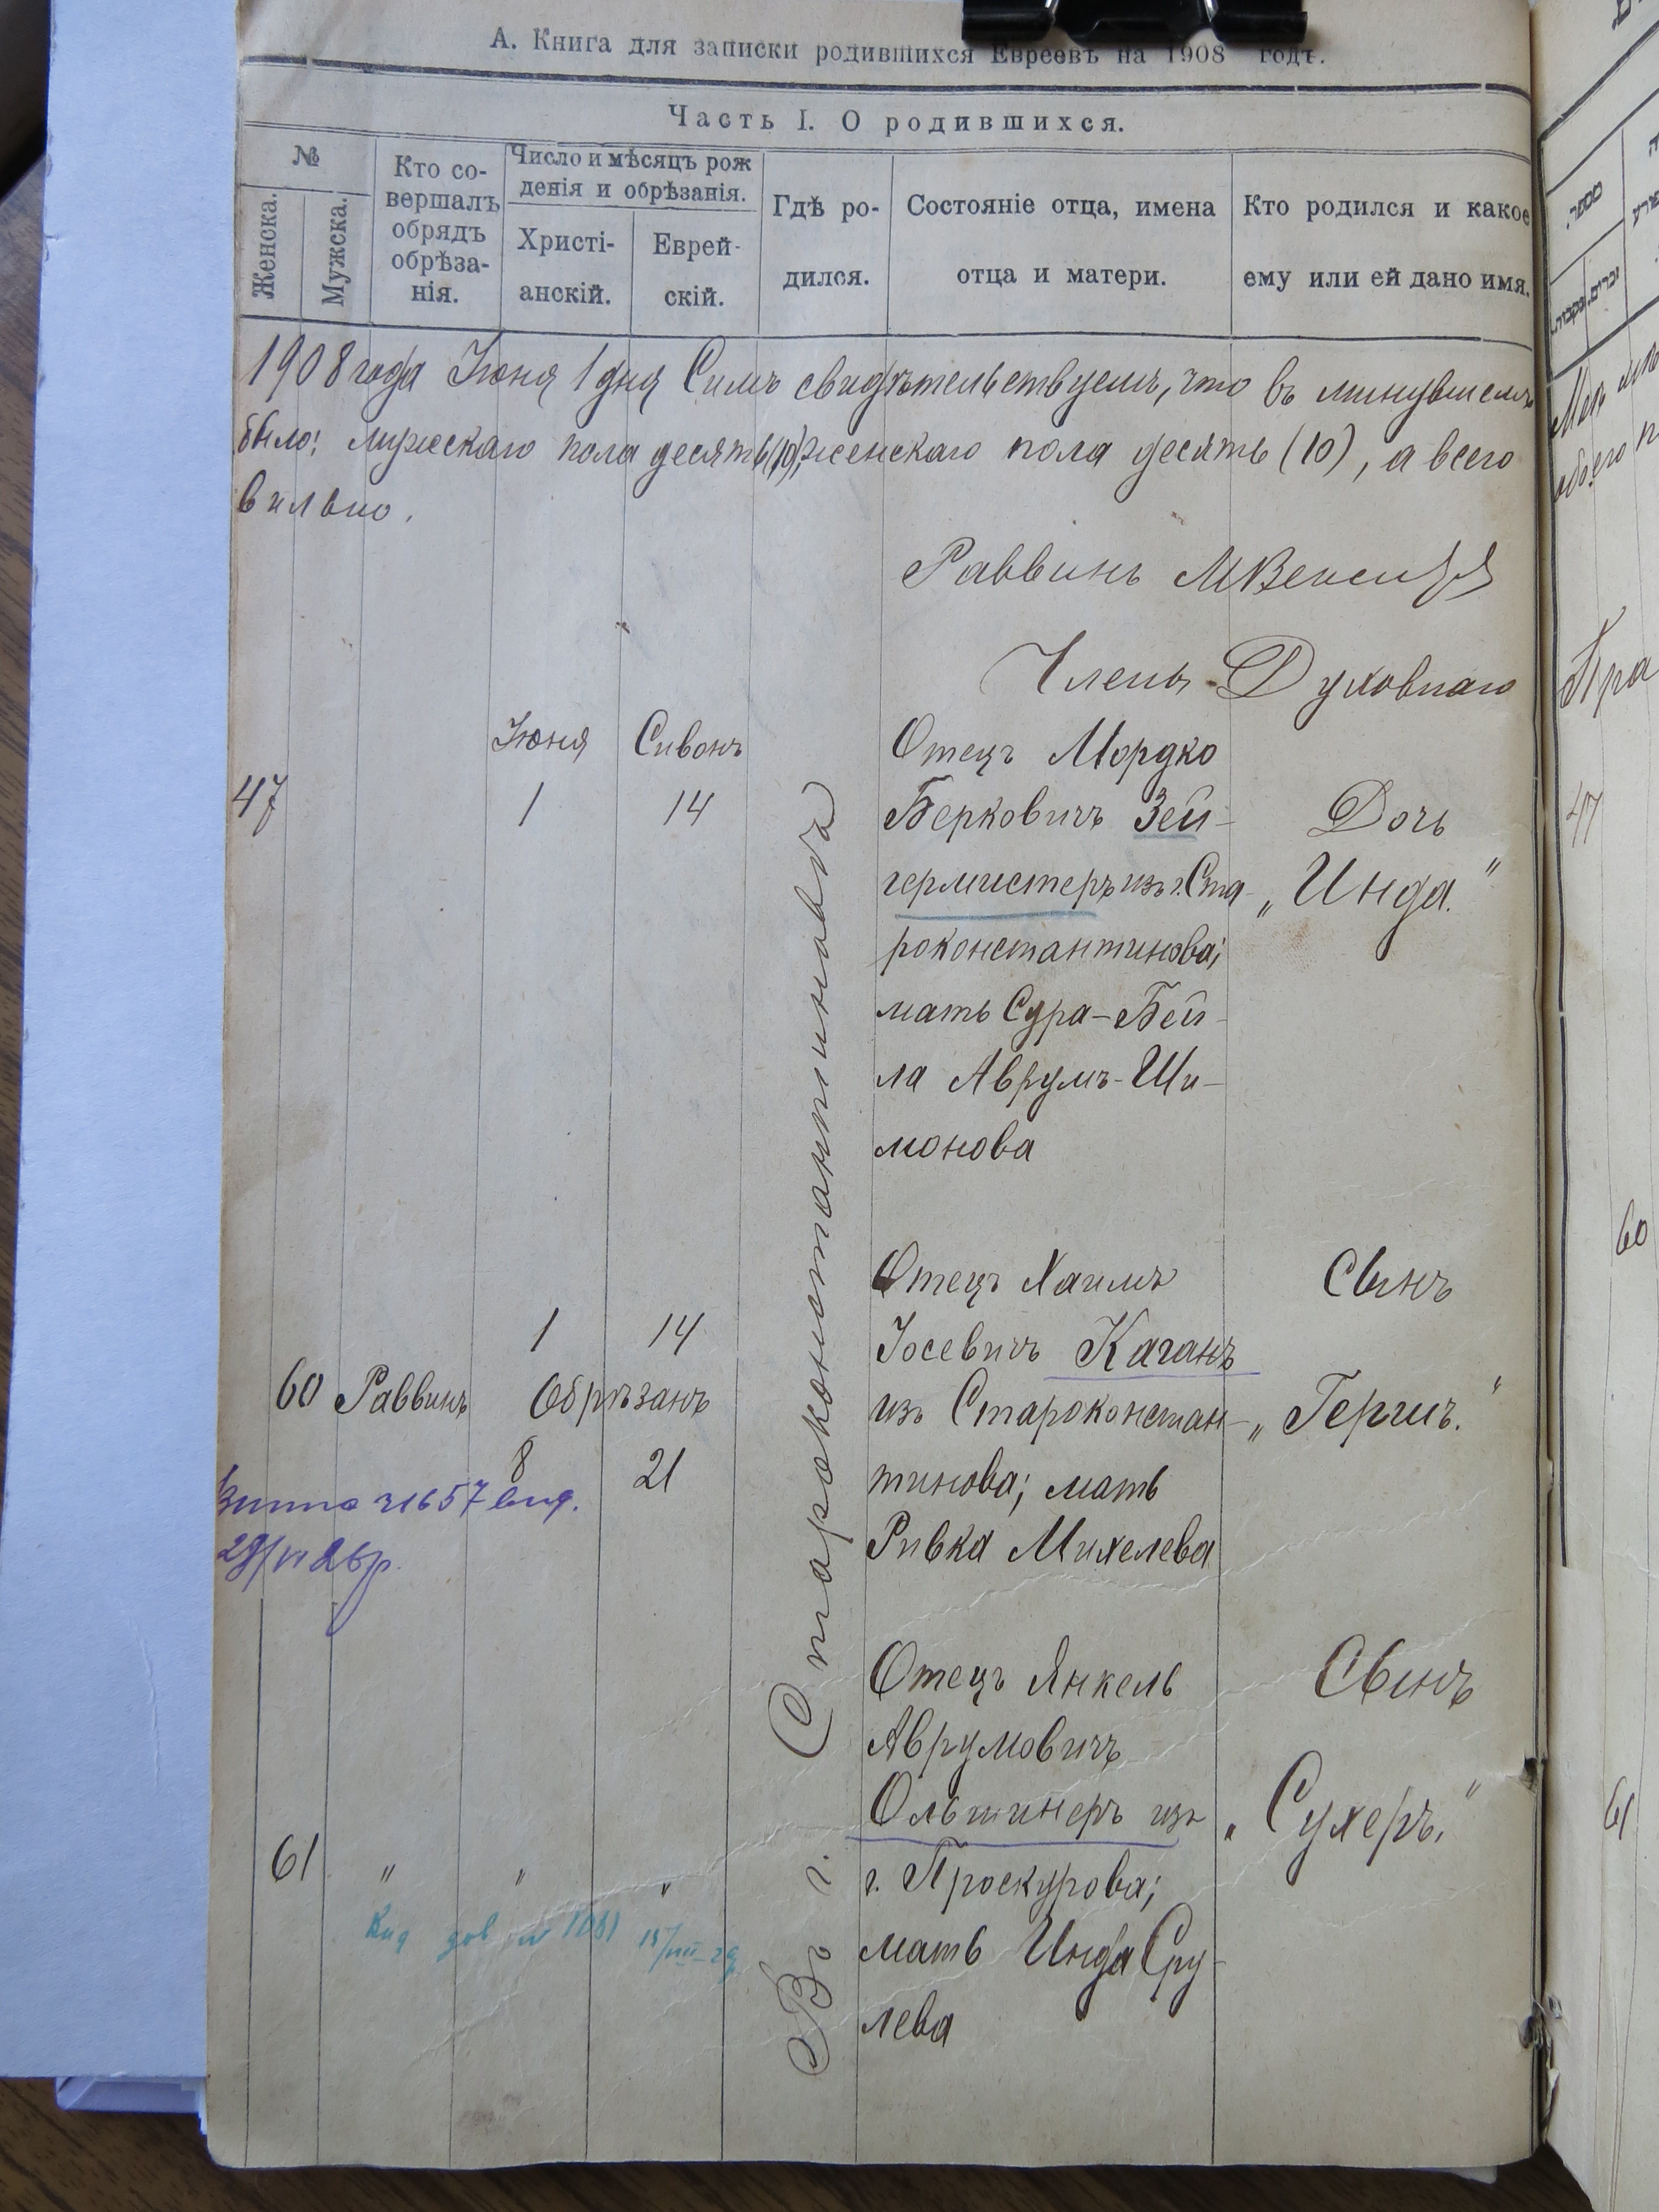 А. Книга для записки родившихся Евреевъ на 1908 годъ.
Часть I. О родившихся.
№
Женска.
Мужска.
Кто со-
вершалъ
обрядъ
обрѣза-
нія.
Число и мѣсяцъ рож
денія и обрѣзанія.
Христі-
анскій.
Еврей-
скій.
Гдѣ ро-
дился.
Состояніе отца, имена
отца и матери.
Кто родился и какое
ему или ей дано имя.
1908 года Іюня 1 дня Симъ свидѣтельствуемъ, что въ минувшемъ
было: мужескаго пола десять (10), женскаго пола десять (10), а всего
вильно.
Раввинъ
Членъ Духовнаго
Іюня Сивонъ
47 1 14
Отецъ Мордко
Берковичъ Зей-
гермистеръ изъ г. Ста-
роконстантинова;
мать Сура-Бей-
ла Аврумъ-Ши-
монова
Дочь
„Инда."
Въ г. Староконстантиновѣ
1 14
60 Раввинъ Обрѣзанъ
8 21
Отецъ Хаимъ
Іосевичъ Каганъ
изъ Староконстан-
тинова; мать
Ривка Михелева
Сынъ
„Гершъ."
61 " " "
Отецъ Янкель
Аврумовичъ
Ольшинеръ изъ
г. Проскурова;
мать Инда Сру-
лева
Сынъ
„Сухеръ."
47
60
61